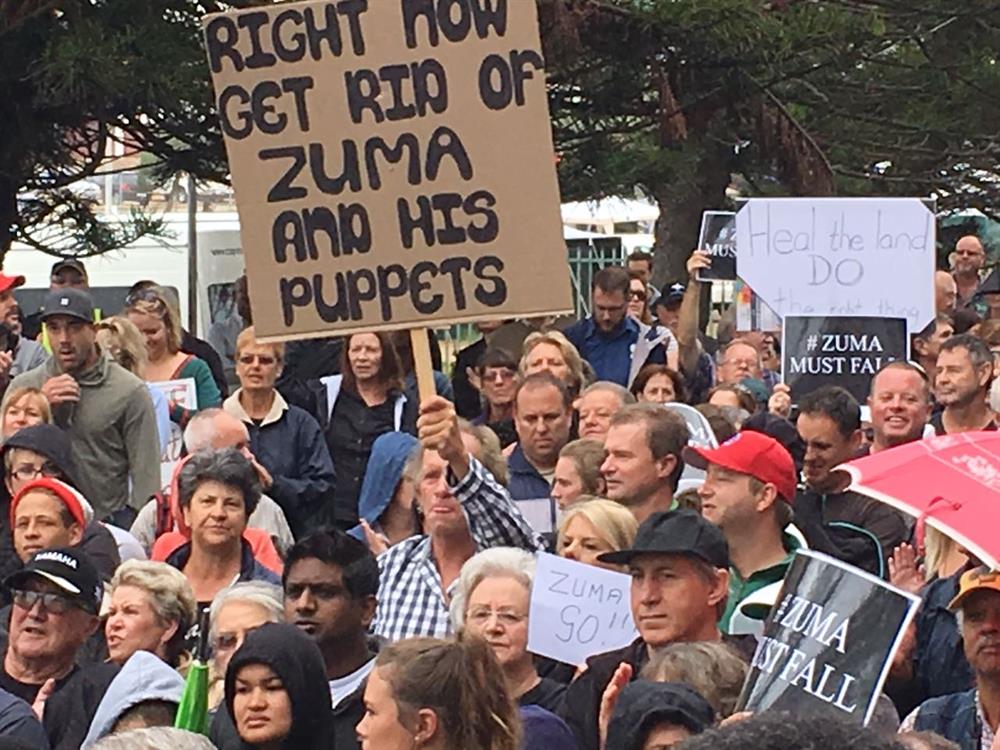 RIGHT NOW
GET RID OF
ZUMA
AND HIS
PUPPETS
MUS
Heal the land
DO
the right thing
# ZUMA
MUST FALL
ZUMA
GO!!
#ZUMA
ST FALL
YAMAHA